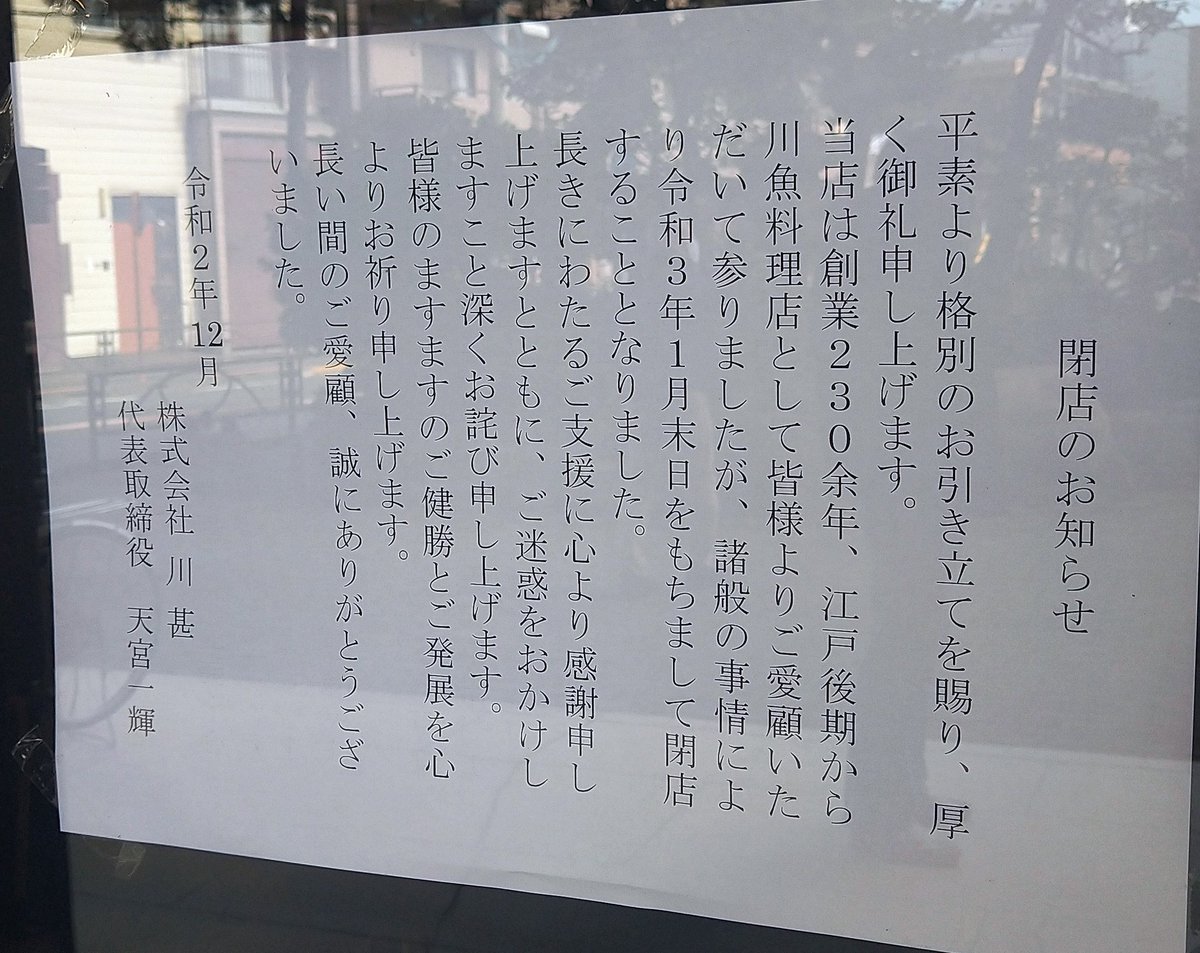 閉店のお知らせ
平素より格別のお引き立てを賜り、厚
く御礼申し上げます。
当店は創業２３０余年、江戸後期から
川魚料理店として皆様よりご愛顧いた
だいて参りましたが、諸般の事情によ
り令和３年１月末日をもちまして閉店
することとなりました。
長きにわたるご支援に心より感謝申し
上げますとともに、ご迷惑をおかけし
ますこと深くお詫び申し上げます。
皆様のますますのご健勝とご発展を心
よりお祈り申し上げます。
長い間のご愛顧、誠にありがとうござ
いました。
令和２年12月
株式会社 川 甚
代表取締役 天宮一輝